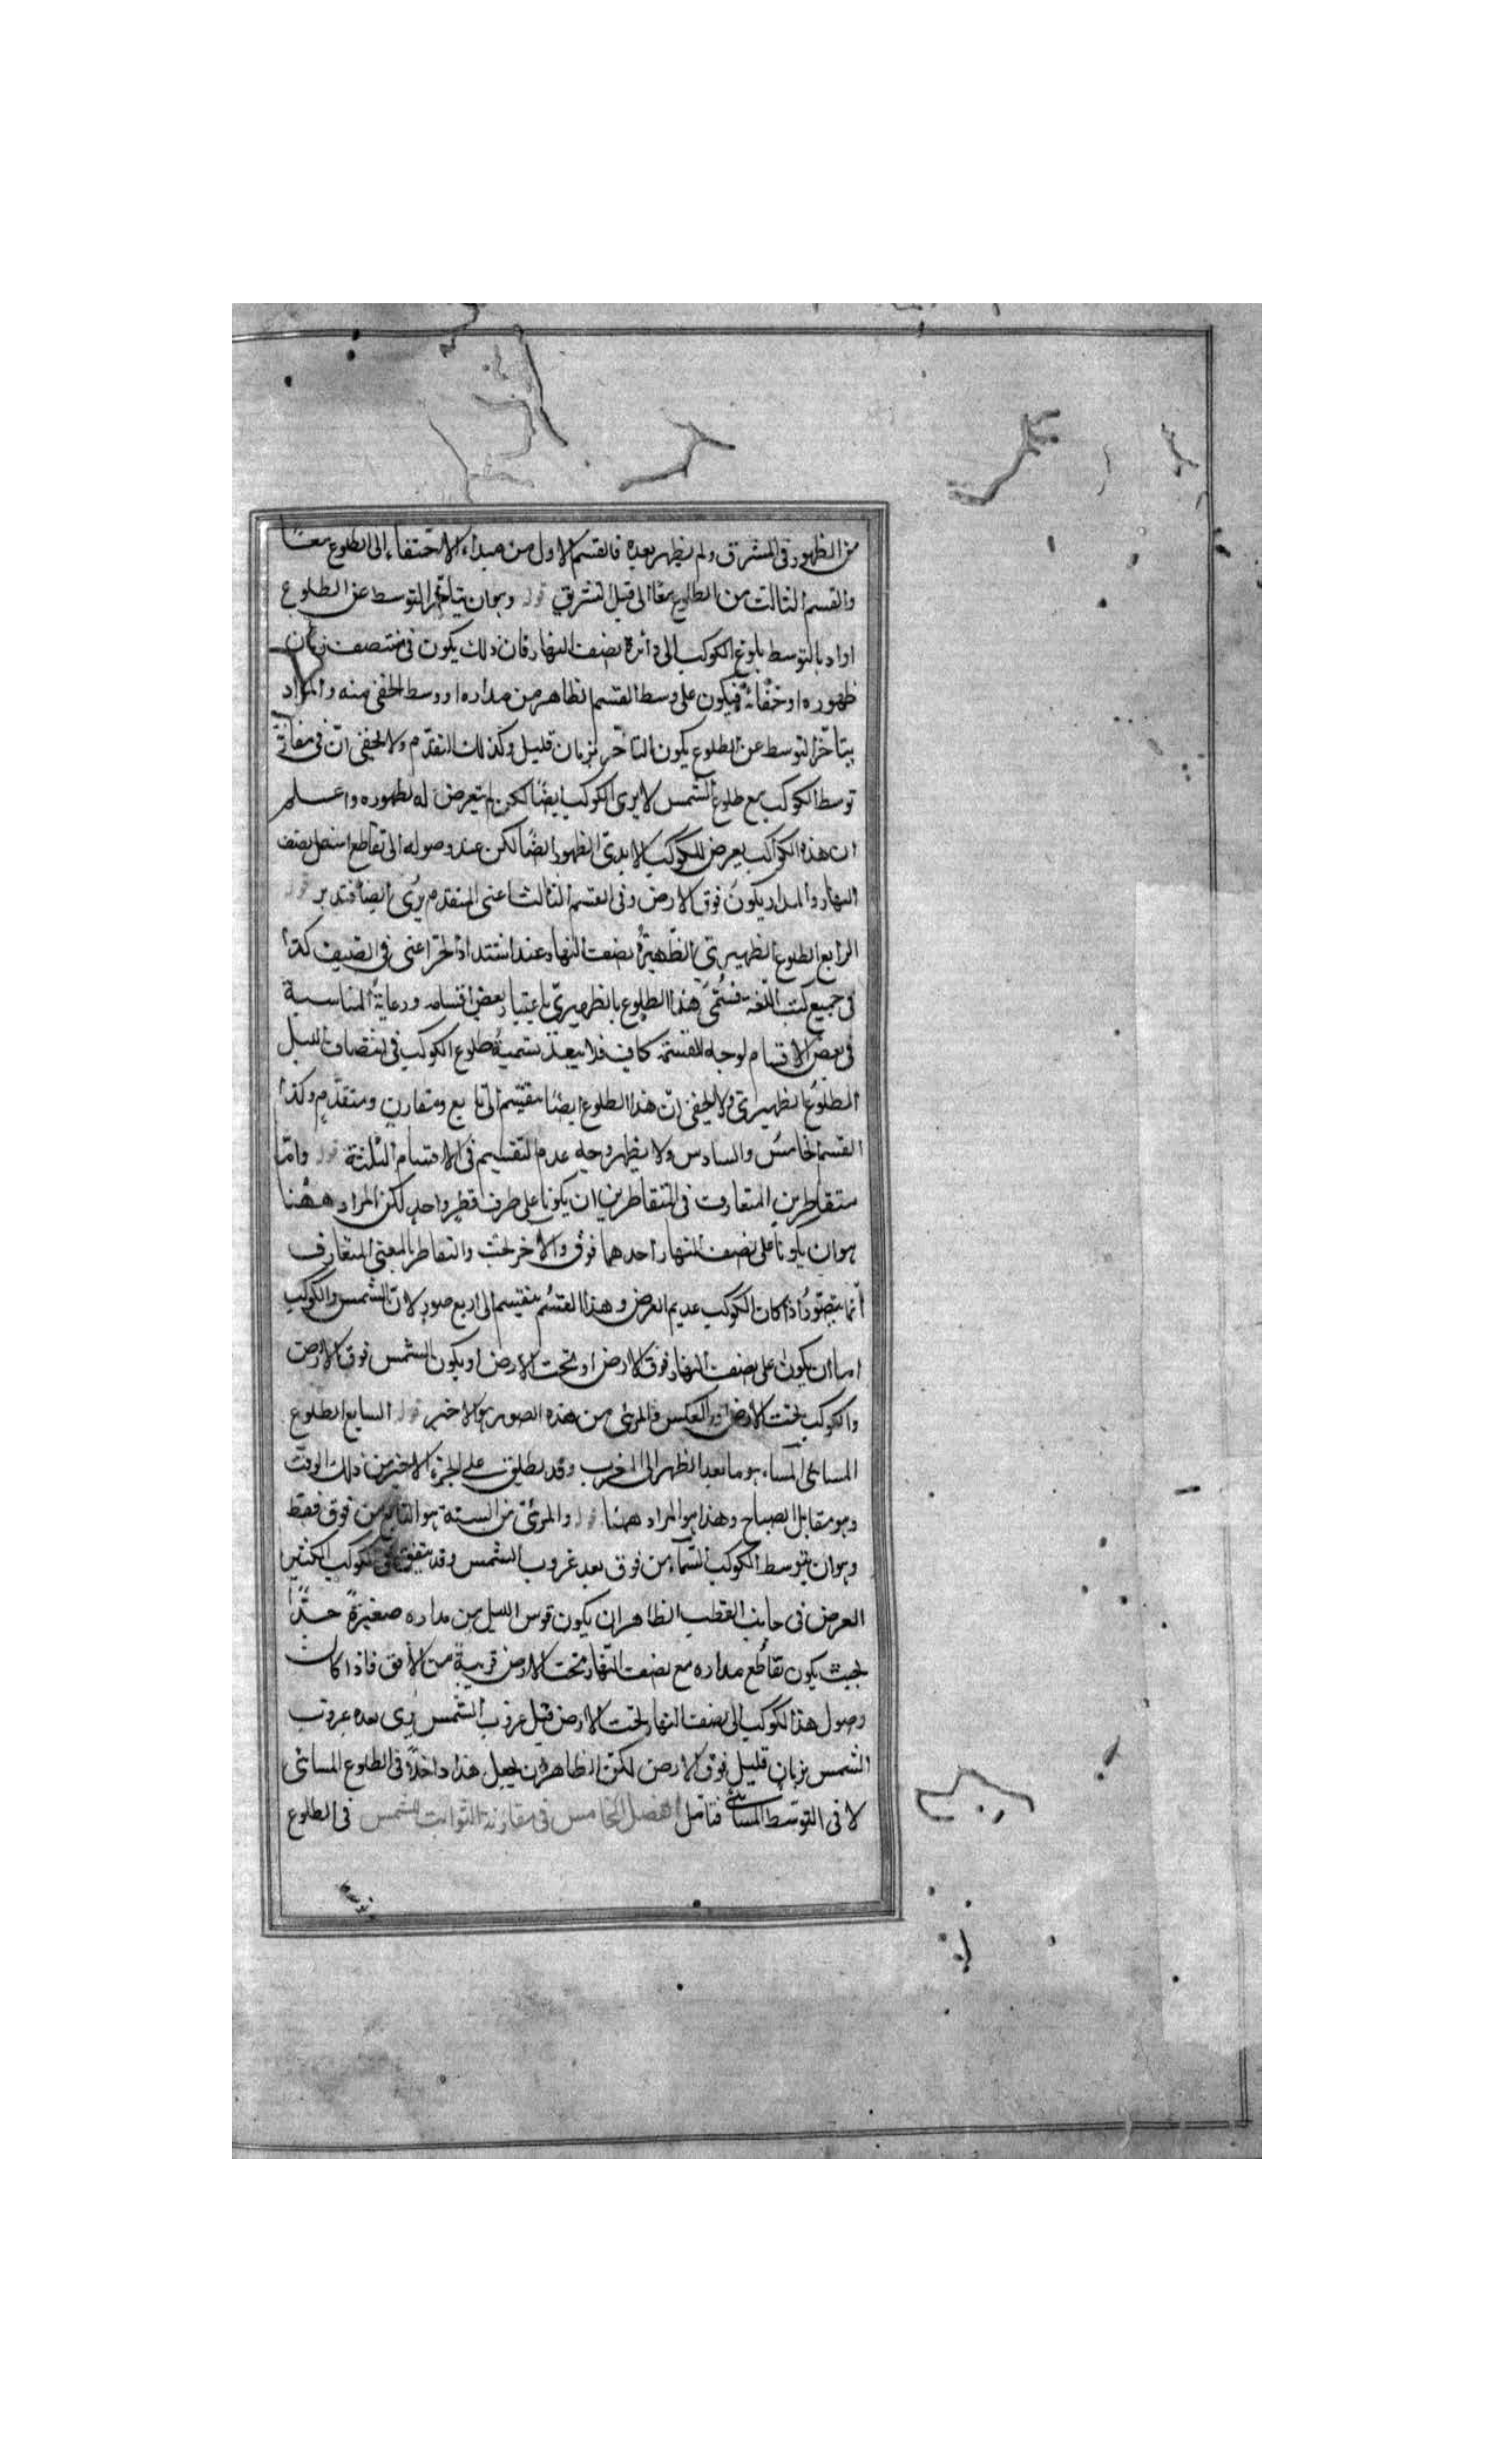 من الظهور فى المشرق ولم يظهر بعده فالقسم الاول من مبداء الاختفاء الى الطلوع معًا
والقسم الثالث من الطلوع معًا الى قبل التشرق قوله وهو ان يتأخّر التوسط عن الطلوع
اراد بالتوسط بلوغ الكوكب الى دائرة نصف النهار فان ذلك يكون فى منتصف زمان
ظهوره او خفائه فيكون على وسط القسم الظاهر من مداره او وسط الخفى منه والمراد
بتأخّر التوسط عن الطلوع يكون التأخّر بزمان قليل وكذلك التقدّم ولا يخفى انّ فى
توسط الكوكب مع طلوع الشمس لا يرى الكوكب ايضًا لكن لم يتعرض له لظهوره واعلم
ان هذه الكواكب يعرض للكوكب الابدى الظهور ايضًا لكن عند وصوله الى تقاطع نصف
النهار والمدار يكون فوق الارض وفى القسم الثالث اعنى المتقدم يرى ايضا فتدبر قوله
الرابع الطلوع الظهيرى الظّهيرة نصف النهار عند اشتداد الحرّ اعنى فى الصيف كذا
فى جميع كتب اللغة فتسمّى هذا الطلوع بالظهيرىّ باعتبار بعض اقسامه ورعاية المناسبة
فى بعض الاقسام لوجه للقسمة كاف فلا يبعد تسمية طلوع الكوكب فى انتصاف الليل
الطلوع الظهيرى ولا يخفى انّ هذا الطلوع ايضًا ينقسم الى تابع ومقارن ومتقدّم وكذا
القسم الخامس والسادس ولا يظهر وجه عدم التقسيم فى الاقسام الثلثة قوله وامّا
متقاطرين المتعارف فى المتقاطرين ان يكونا على طرفى قطر واحد لكن المراد ههنا
هو ان يكونا على نصف النهار احدهما فوق والآخر تحت والتقاطر بالمعنى المتعارف
انّما يتصوّر اذا كان الكوكب عديم العرض وهذا القسم ينقسم الى اربع صور لانّ الشمس والكوكب
اما ان يكونا على نصف النهار فوق الارض او تحت الارض او يكون الشمس فوق الارض
والكوكب تحت الارض او بالعكس والمرئى من هذه الصور هو الاخير قوله السابع الطلوع
المسائى المساء هو ما بعد الظهر الى المغرب وقد يطلق على الجزء الاخير من ذلك الوقت
وهو مقابل الصباح وهذا هو المراد ههنا قوله والمرئى من الستة هو التابع من فوق فقط
وهو ان يتوسط الكوكب السّماء من فوق بعد غروب الشمس وقد يتفق فى كوكب الكثير
العرض فى جانب القطب الظاهر ان يكون قوس الليل من مداره صغيرة جدًّا
بحيث يكون تقاطع مداره مع نصف النهار تحت الارض قريبة من الافق فاذا كان
وصول هذا الكوكب الى نصف النهار تحت الارض قبل غروب الشمس يرى بعده غروب
الشمس بزمان قليل فوق الارض لكنّ الظاهر ان يجعل هذا داخلًا فى الطلوع المسائى
لا فى التوسّط المسائى فتأمّل الفصل الخامس فى مقارنة الثوابت للشمس فى الطلوع